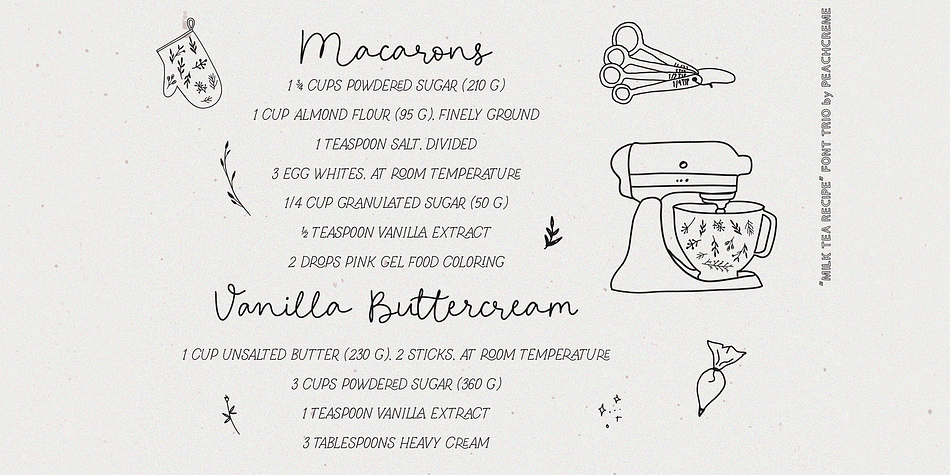 Macarons
1 ¾ CUPS POWDERED SUGAR (210 G)
1 CUP ALMOND FLOUR (95 G), FINELY GROUND
1 TEASPOON SALT, DIVIDED
3 EGG WHITES, AT ROOM TEMPERATURE
1/4 CUP GRANULATED SUGAR (50 G)
½ TEASPOON VANILLA EXTRACT
2 DROPS PINK GEL FOOD COLORING
Vanilla Buttercream
1 CUP UNSALTED BUTTER (230 G), 2 STICKS, AT ROOM TEMPERATURE
3 CUPS POWDERED SUGAR (360 G)
1 TEASPOON VANILLA EXTRACT
3 TABLESPOONS HEAVY CREAM
"MILK TEA RECIPE" FONT TRIO by PEACHCREME